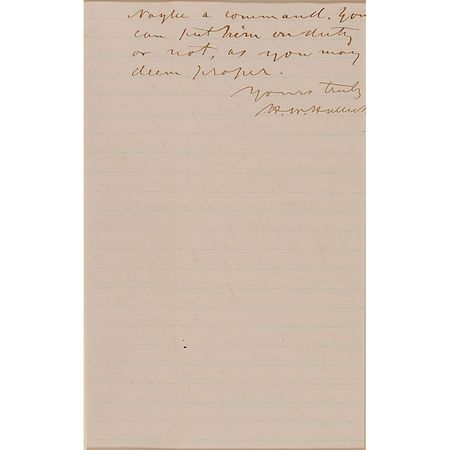 Naglee a command. You
can put him on duty
or not, as you may
deem proper.
Yours truly
H. W. Halleck